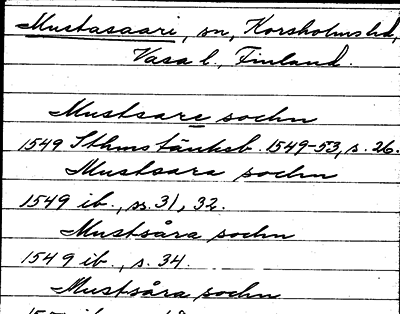 Mustasaari, sn, Korsholms hd,
Vasa l., Finland.
Mustsare sochn
1549 Sthms tänkeb. 1549-53, s. 26.
Mustsara sochn
1549 ib., ss. 31, 32.
Mustsåra sochn
1549 ib., s. 34.
Mustsåra sochn